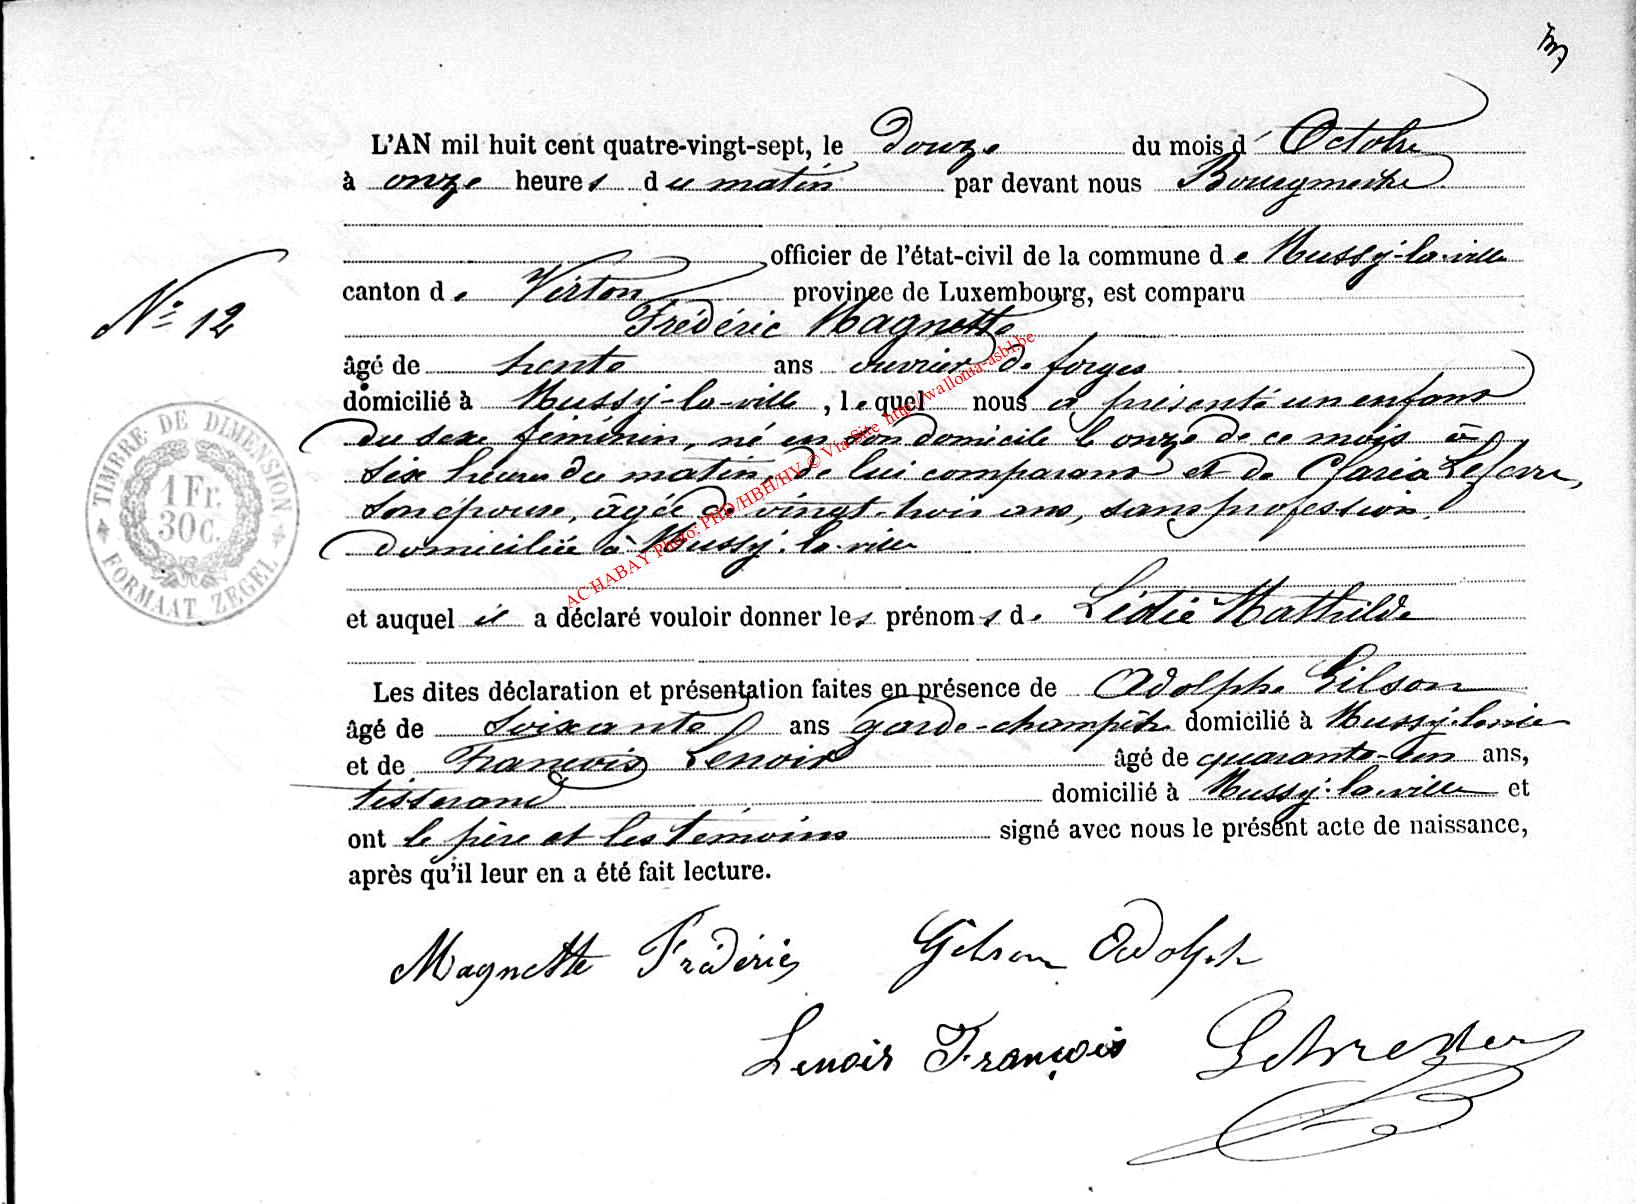 L'AN mil huit cent quatre-vingt-sept, le douze du mois d'Octobre
à onze heures du matin par devant nous Bourgmestre
officier de l'état-civil de la commune de Mussy-la-ville
N° 12
canton de Virton province de Luxembourg, est comparu
Frédéric Magnette
âgé de trente ans ouvrier de forges
domicilié à Mussy-la-ville, lequel nous a présenté un enfant
du sexe féminin, né en son domicile le onze de ce mois à
six heures du matin, de lui comparant et de Claria Lefevre,
son épouse, âgée de vingt-trois ans, sans profession,
domiciliée à Mussy-la-ville
et auquel il a déclaré vouloir donner les prénoms de Lidie Mathilde
Les dites déclaration et présentation faites en présence de Adolphe Gilson
âgé de soixante ans garde-champêtre domicilié à Mussy-la-ville
et de François Lenoir âgé de quarante-un ans,
tisserand domicilié à Mussy-la-ville et
ont le père et les témoins signé avec nous le présent acte de naissance,
après qu'il leur en a été fait lecture.
Magnette Frédéric Gilson Adolphe
Lenoir François
TIMBRE DE DIMENSION
1 Fr.
30 c.
FORMAAT ZEGEL
AC HABAY Photo: PHD/HBH/HY © Via Site http://wallonia-asbl.be